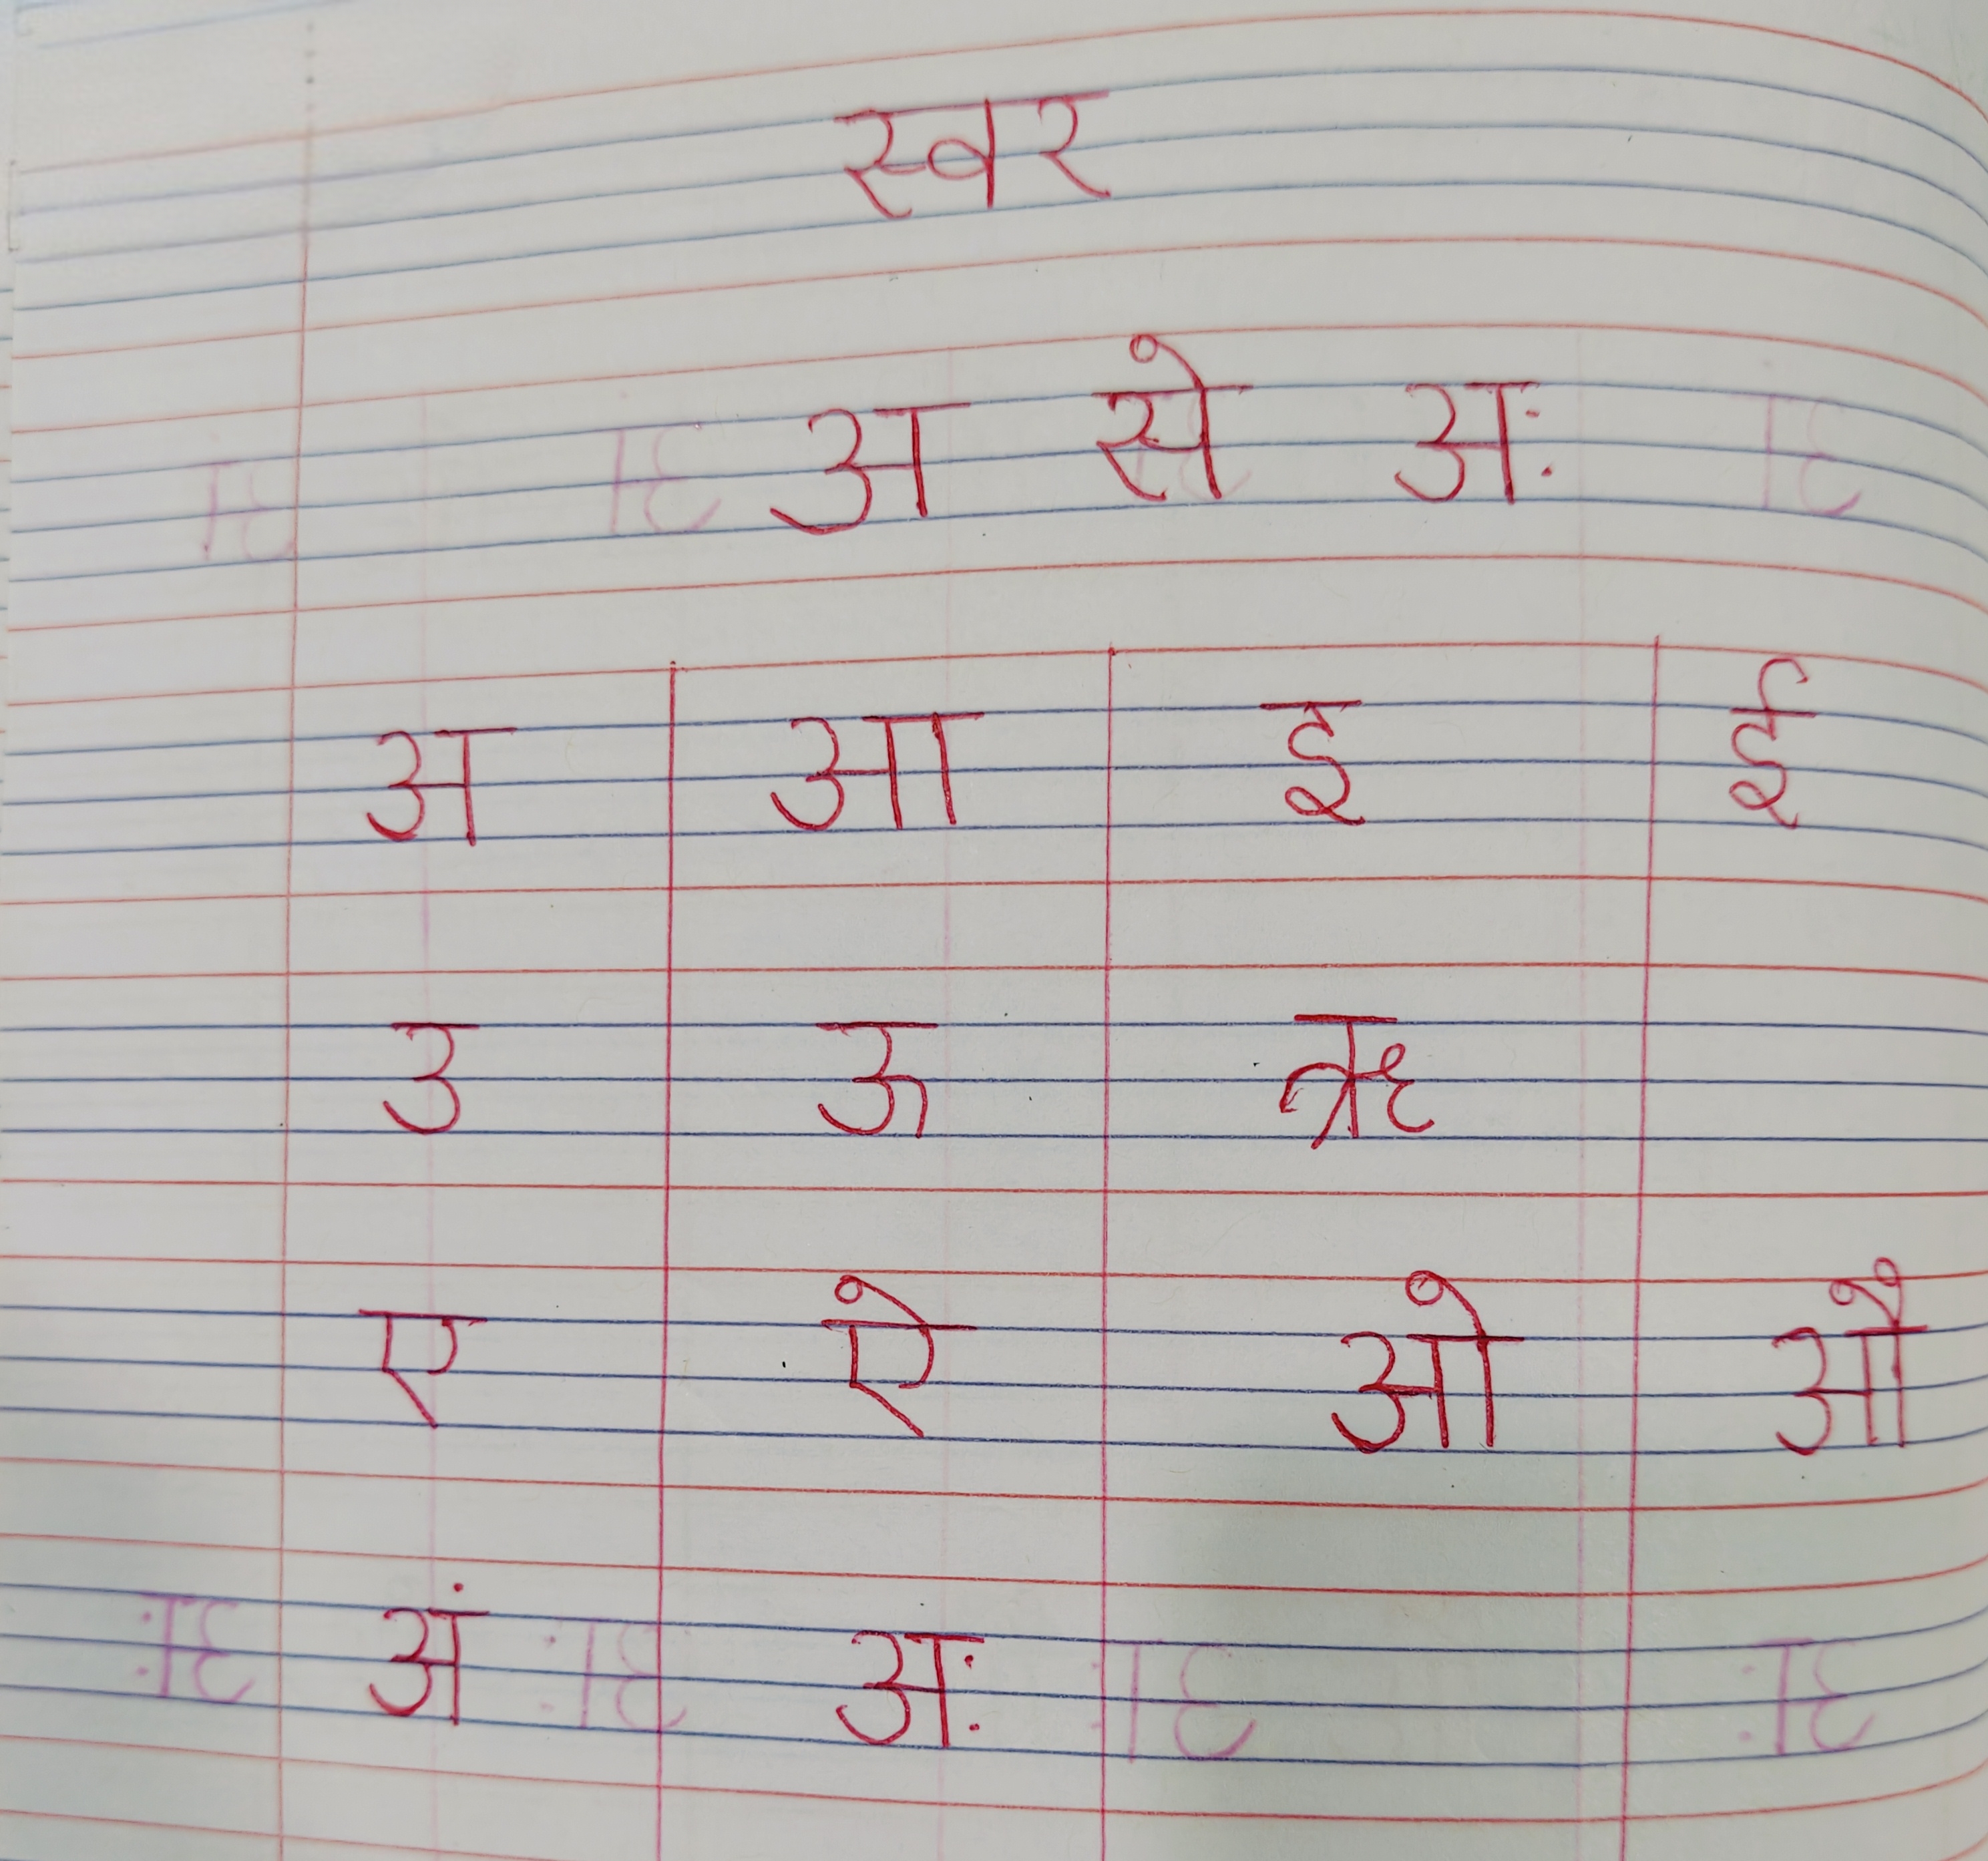 स्वर
अ से अः
अ आ इ ई
उ ऊ ऋ
ए ऐ ओ औ
अं अः